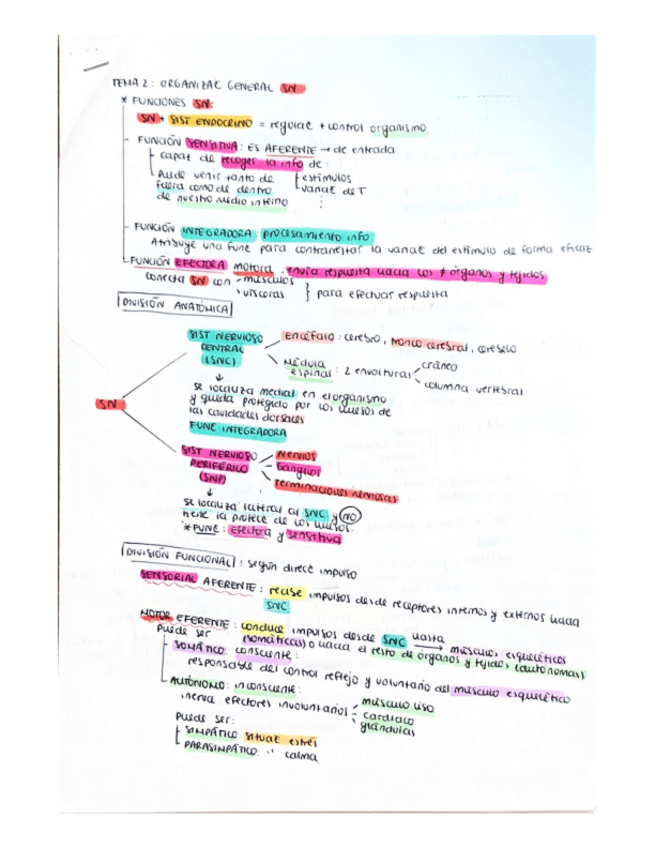 TEMA 2: ORGANIZAC GENERAL SN
* FUNCIONES SN:
SN + SIST ENDOCRINO = regulac + control organismo
- FUNCIÓN SENSITIVA: ES AFERENTE → de entrada
capac de recoger la info de:
Puede venir tanto de
fuera como de dentro
de nuestro medio interno
estímulos
variac de T
⋮
- FUNCIÓN INTEGRADORA: procesamiento info
Atribuye una func para contrarrestar la variac del estímulo de forma eficaz
- FUNCIÓN EFECTORA motora: envía respuesta hacia los ≠ órganos y tejidos
conecta SN con - músculos
- vísceras } para efectuar respuesta
DIVISIÓN ANATÓMICA
SN
SIST NERVIOSO
CENTRAL
(SNC)
Encéfalo: cerebro, tronco cerebral, cerebelo
Médula
espinal: 2 envolturas
cráneo
columna vertebral
↓
se localiza medial en el organismo
y queda protegido por los huesos de
las cavidades dorsales
FUNC INTEGRADORA
SIST NERVIOSO
PERIFÉRICO
(SNP)
Nervios
Ganglios
Terminaciones nerviosas
↓
se localiza lateral al SNC y NO
tiene la protecc de los huesos.
* FUNC: Efectora y sensitiva
DIVISIÓN FUNCIONAL: según direcc impulso
SENSORIAL AFERENTE: recibe impulsos desde receptores internos y externos hacia
SNC
MOTOR EFERENTE: conduce impulsos desde SNC hasta → músculos esqueléticos
(somáticas) o hacia el resto de órganos y tejidos (autónomas)
Puede ser
- SOMÁTICO: consciente:
responsable del control reflejo y voluntario del músculo esquelético
- AUTÓNOMO: inconsciente:
inerva efectores involuntarios
músculo liso
cardíaco
glándulas
Puede ser:
SIMPÁTICO: situac estrés
PARASIMPÁTICO: '' calma